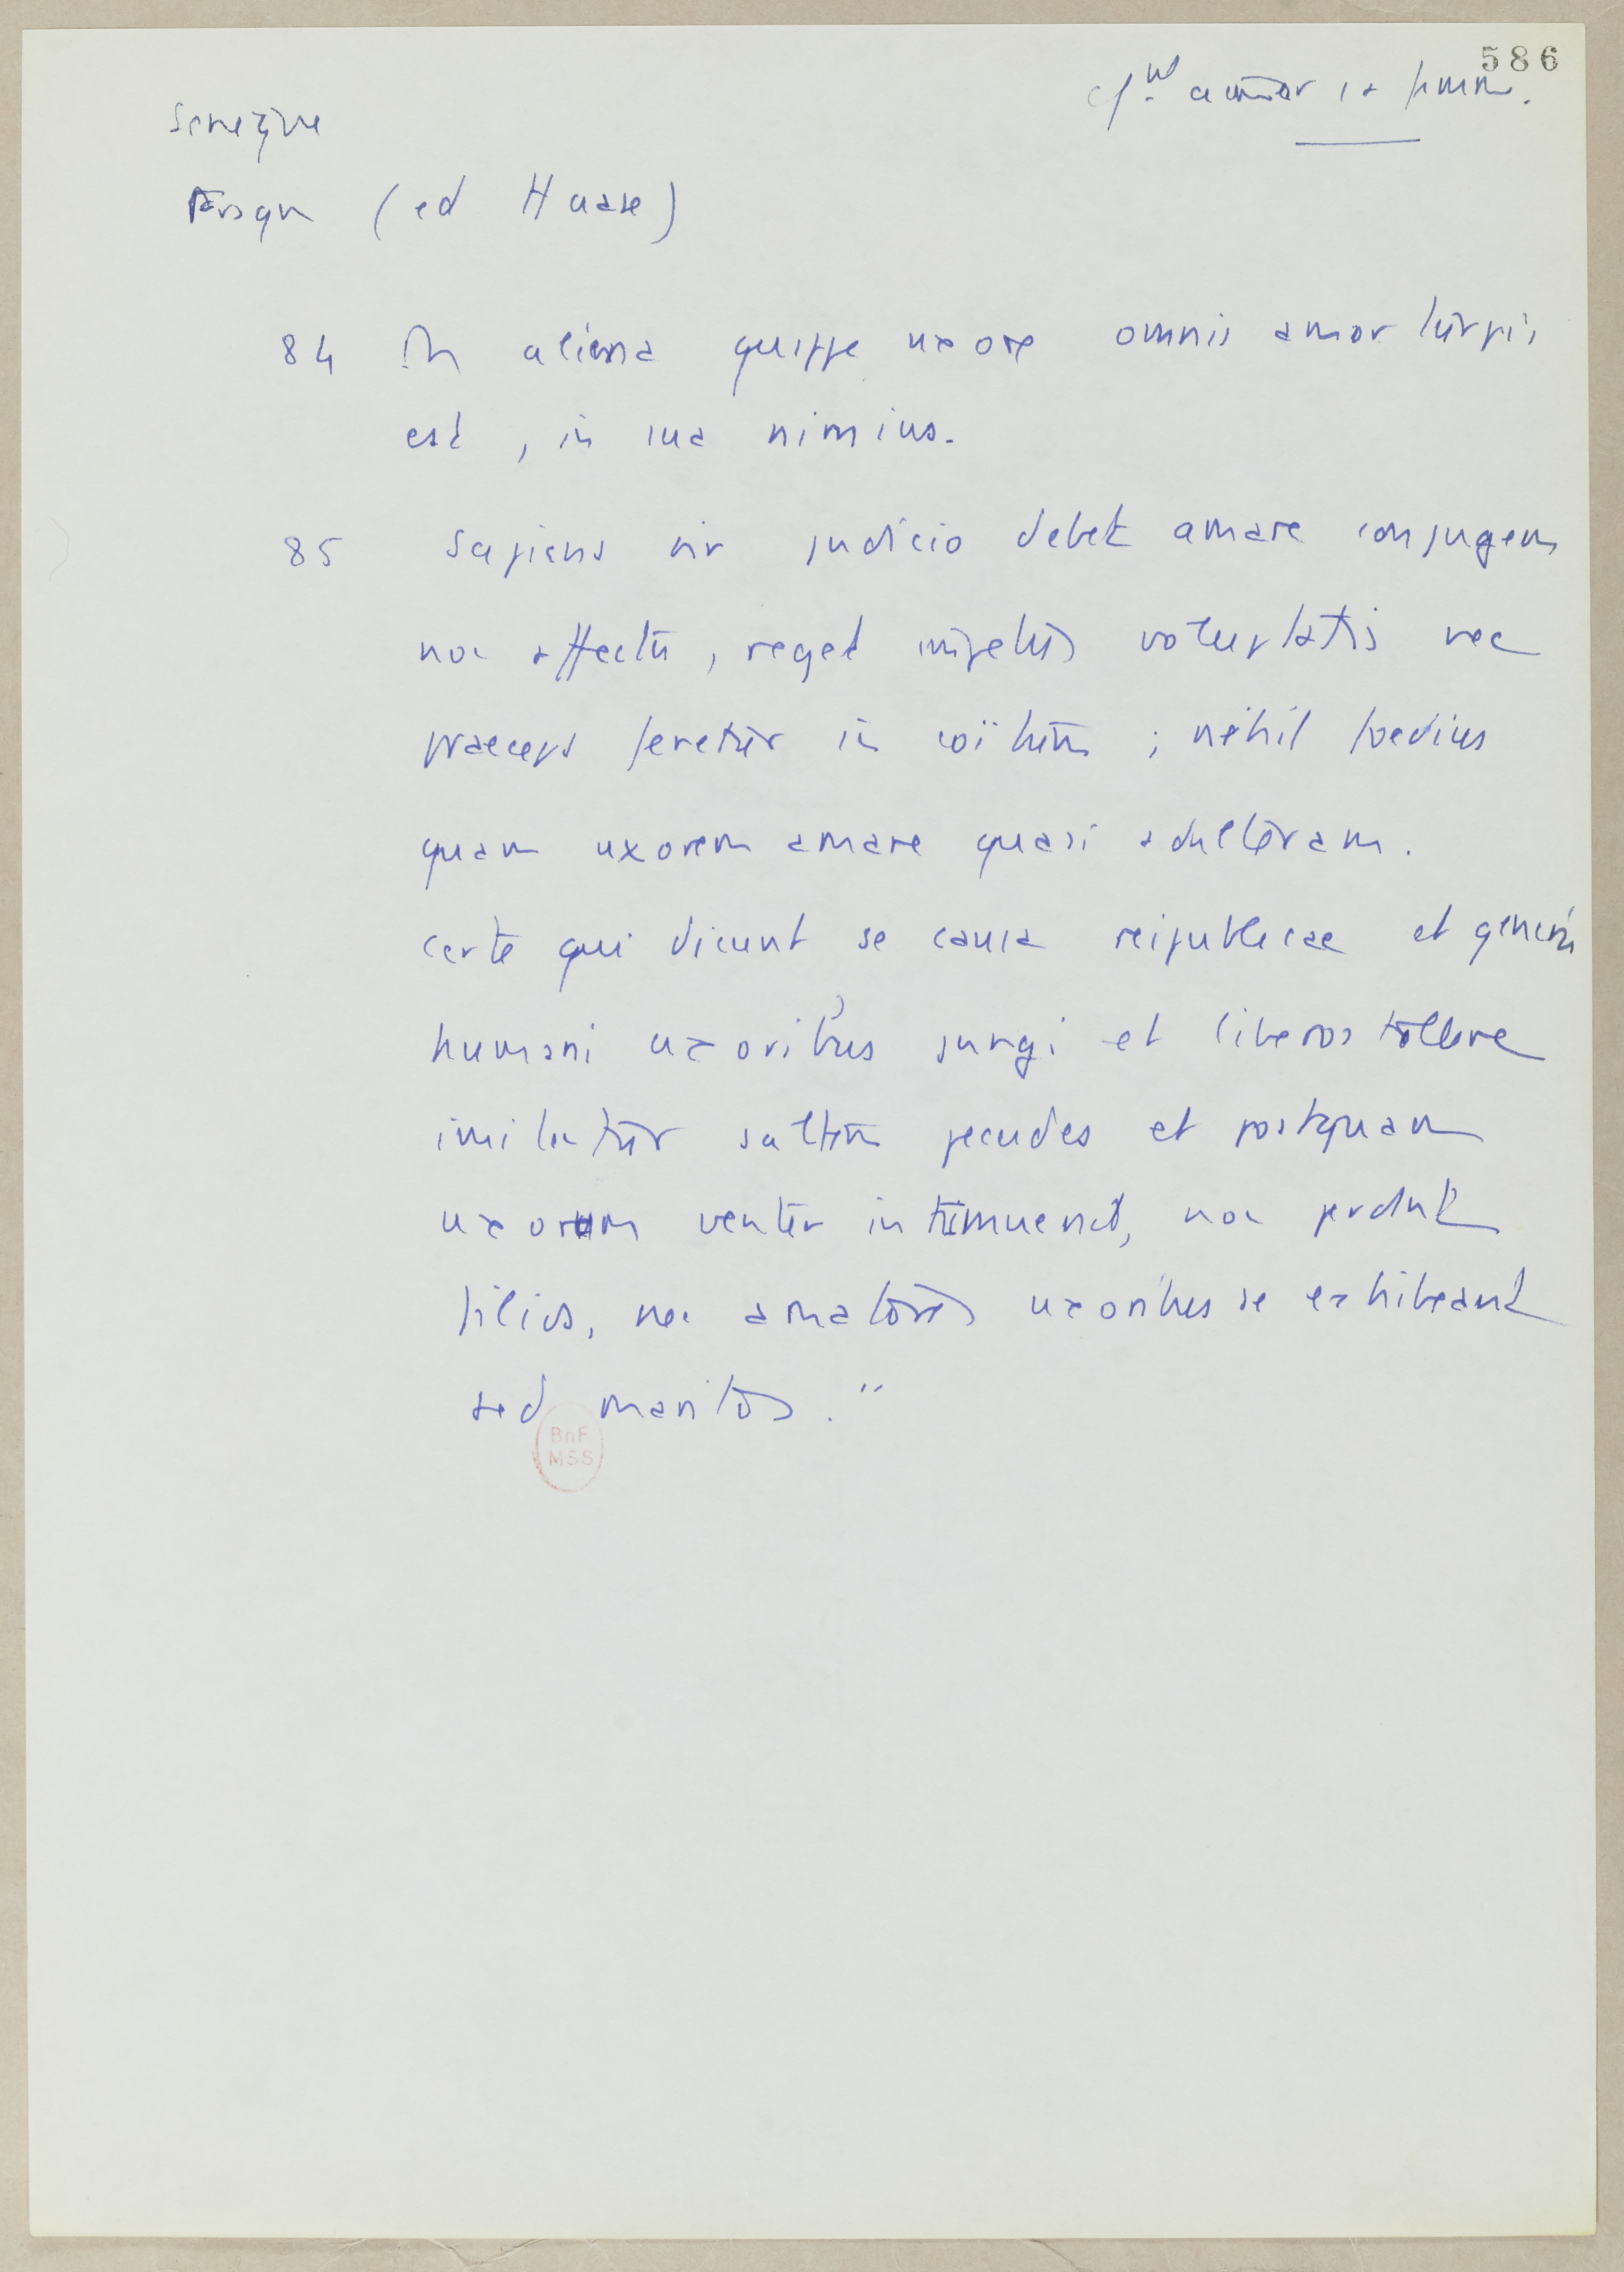 586
cf. aimer sa femme.
Sénèque
Fragm (ed Haase)
84 In aliena quippe uxore omnis amor turpis
est, in sua nimius.
85 Sapiens vir judicio debet amare conjugem
non affectu, reget impetus voluptatis nec
praeceps feretur in coïtum ; nihil foedius
quam uxorem amare quasi adulteram.
certe qui dicunt se causa reipublicae et generis
humani uxoribus jungi et liberos tollere
imitentur saltem pecudes et postquam
uxorum venter intumuerit, non perdant
filios, nec amatores uxoribus se exhibeant
sed maritos."
BnF
MSS